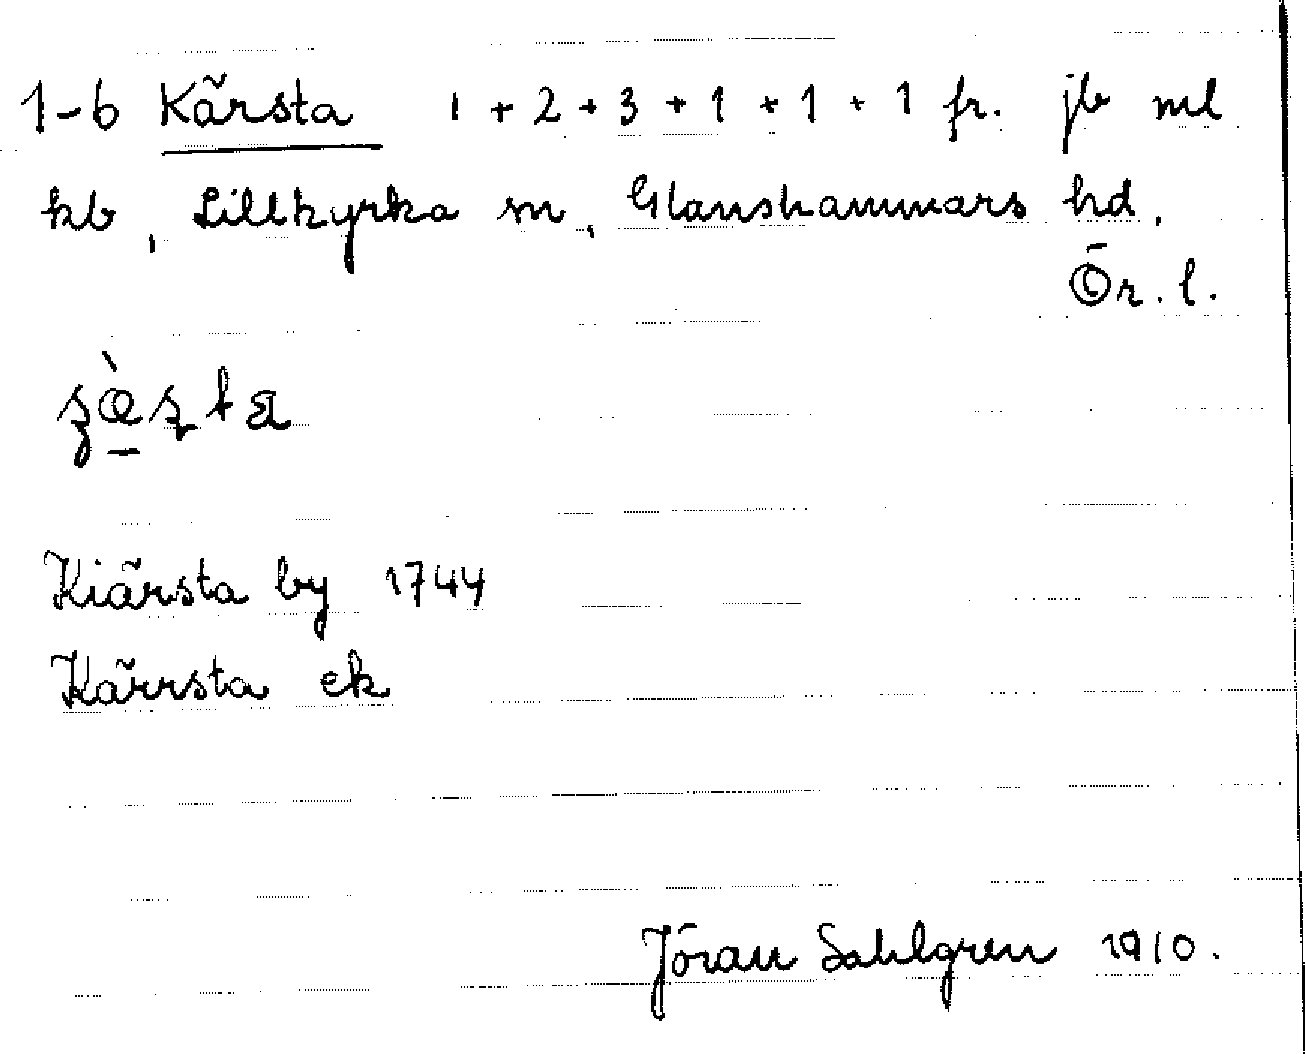 1-6 Kärsta 1 + 2 + 3 + 1 + 1 + 1 fr. jb ml
kb, Lillkyrka sn, Glanshammars hd.
Ör. l.
Kiärsta by 1744
Kärrsta ek
Jöran Sahlgren 1910.